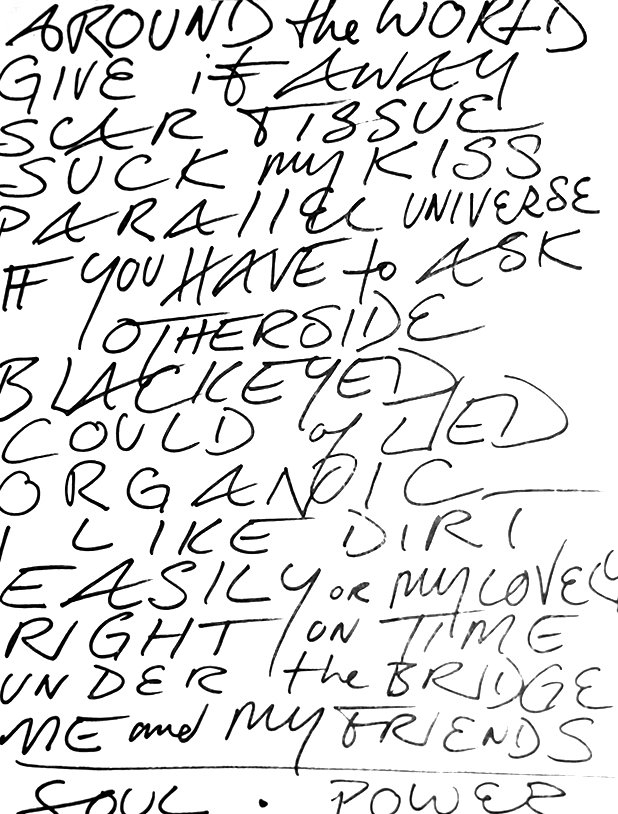 AROUND the WORLD
GIVE it AWAY
SCAR TISSUE
SUCK my KISS
PARAllEL UNIVERSE
IF YOU HAVE to ASK
OTHERSIDE
BLACKEYED
COULD of LIED
ORGANOIC
I LIKE DIRT
EASILY OR MY LOVELY
RIGHT ON TIME
UNDER the BRIDGE
ME and MY FRIENDS
SOUL · POWER